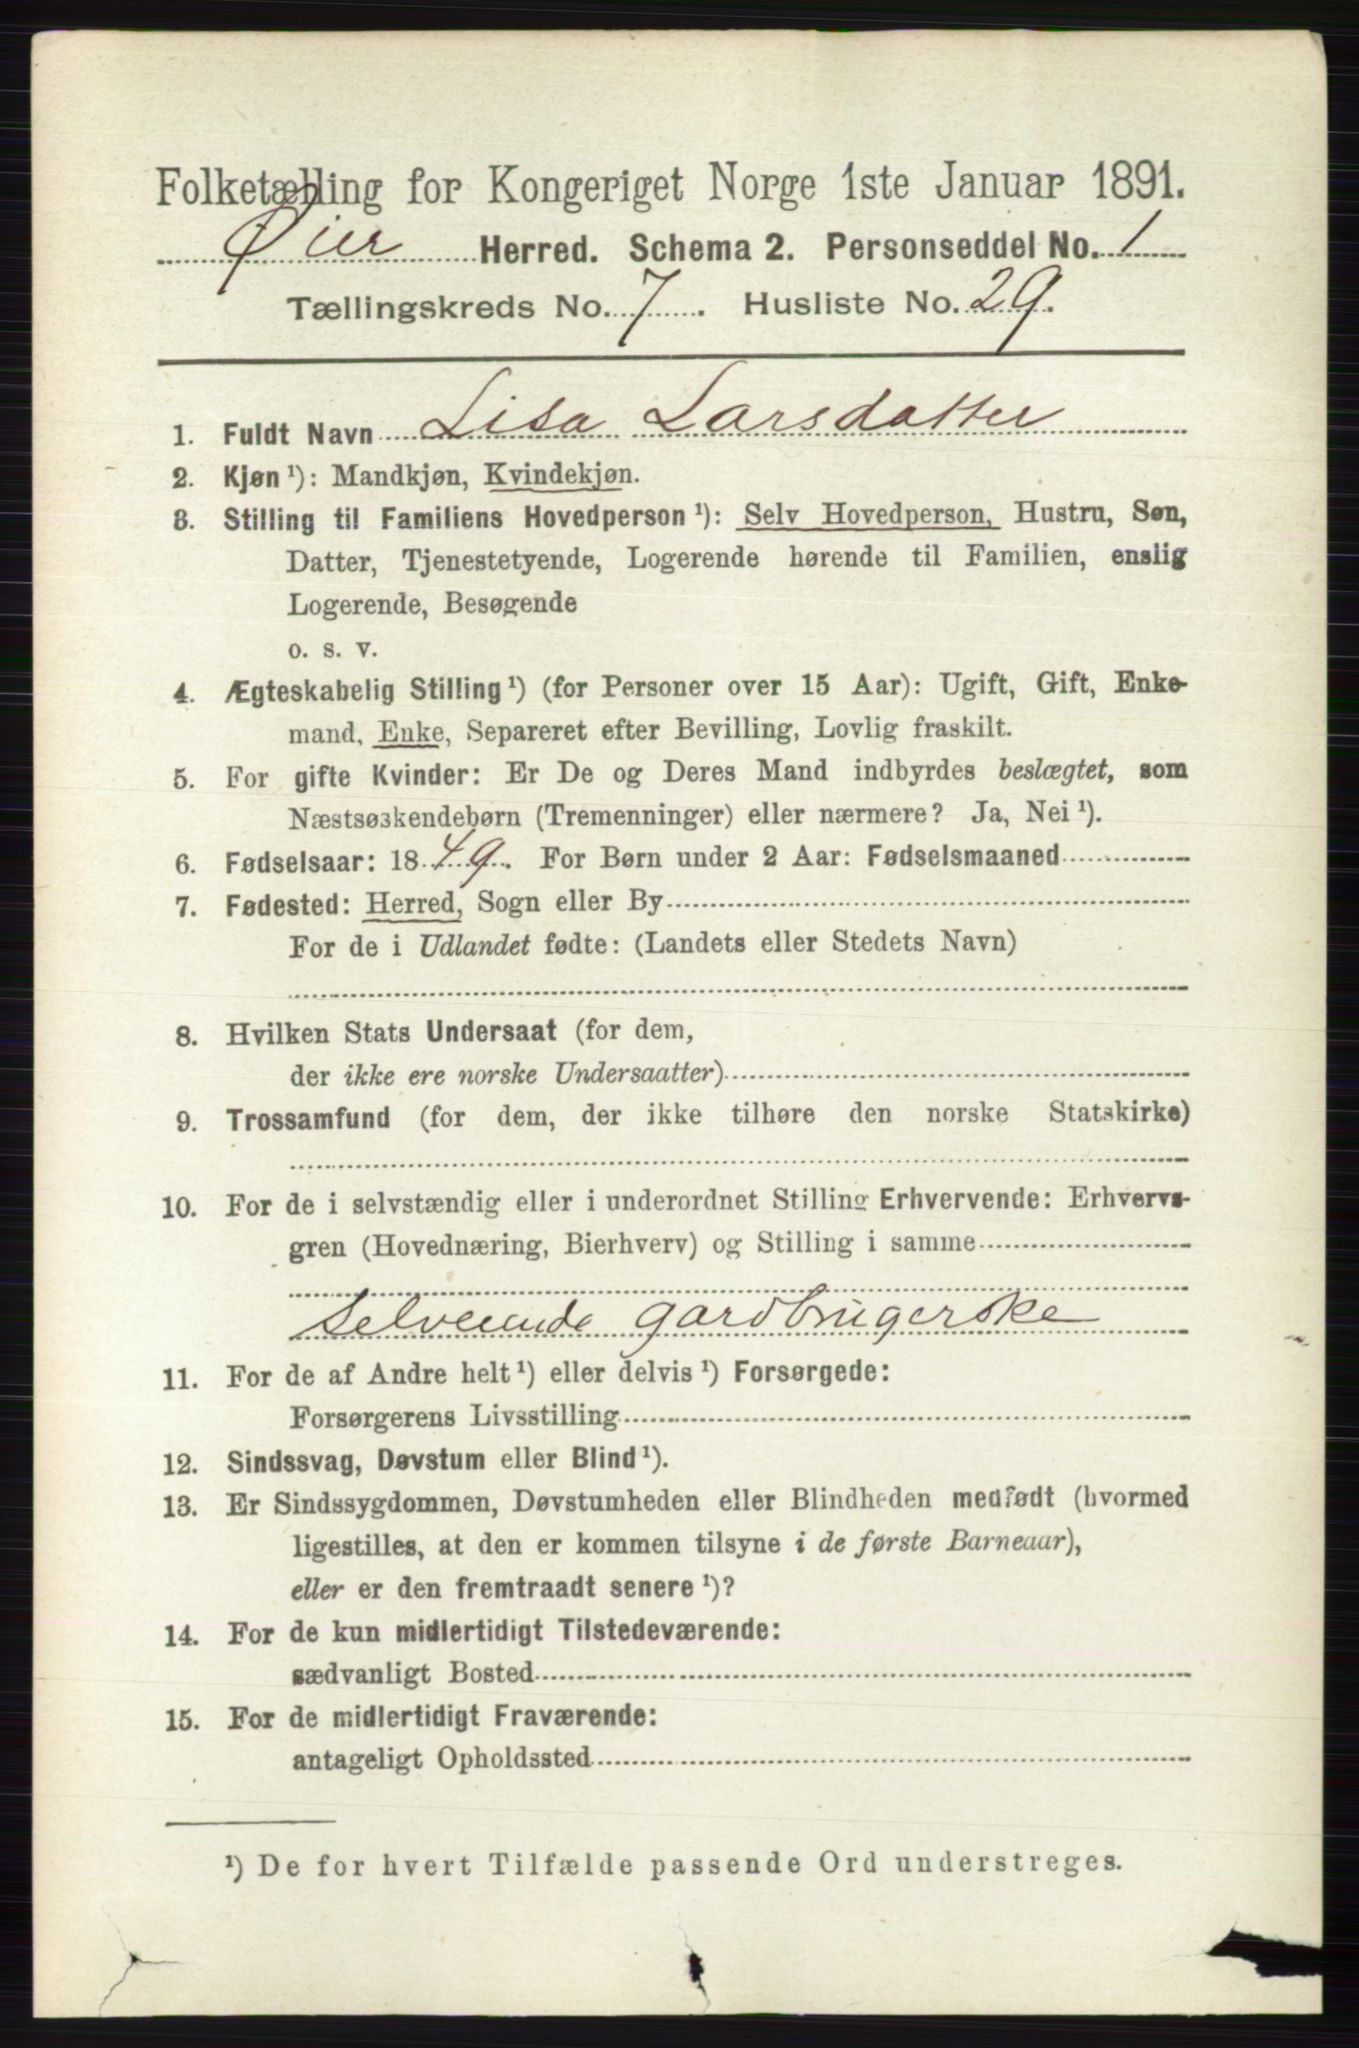 Folketælling for Kongeriget Norge 1ste Januar 1891.
Øier Herred. Schema 2. Personseddel No. 1
Tællingskreds No. 7. Husliste No. 29.
1. Fuldt Navn Lisa Larsdatter
2. Kjøn ¹): Mandkjøn, Kvindekjøn.
3. Stilling til Familiens Hovedperson ¹): Selv Hovedperson, Hustru, Søn,
Datter, Tjenestetyende, Logerende hørende til Familien, enslig
Logerende, Besøgende
o. s. v.
4. Ægteskabelig Stilling ¹) (for Personer over 15 Aar): Ugift, Gift, Enke-
mand, Enke, Separeret efter Bevilling, Lovlig fraskilt.
5. For gifte Kvinder: Er De og Deres Mand indbyrdes beslægtet, som
Næstsøskendebørn (Tremenninger) eller nærmere? Ja, Nei ¹).
6. Fødselsaar: 1849. For Børn under 2 Aar: Fødselsmaaned
7. Fødested: Herred, Sogn eller By
For de i Udlandet fødte: (Landets eller Stedets Navn)
8. Hvilken Stats Undersaat (for dem,
der ikke ere norske Undersaatter)
9. Trossamfund (for dem, der ikke tilhøre den norske Statskirke)
10. For de i selvstændig eller i underordnet Stilling Erhvervende: Erhvervs-
gren (Hovednæring, Bierhverv) og Stilling i samme
Selveiende gardbrugerske
11. For de af Andre helt ¹) eller delvis ¹) Forsørgede:
Forsørgerens Livsstilling
12. Sindssvag, Døvstum eller Blind ¹).
13. Er Sindssygdommen, Døvstumheden eller Blindheden medfødt (hvormed
ligestilles, at den er kommen tilsyne i de første Barneaar),
eller er den fremtraadt senere ¹)?
14. For de kun midlertidigt Tilstedeværende:
sædvanligt Bosted
15. For de midlertidigt Fraværende:
antageligt Opholdssted
¹) De for hvert Tilfælde passende Ord understreges.